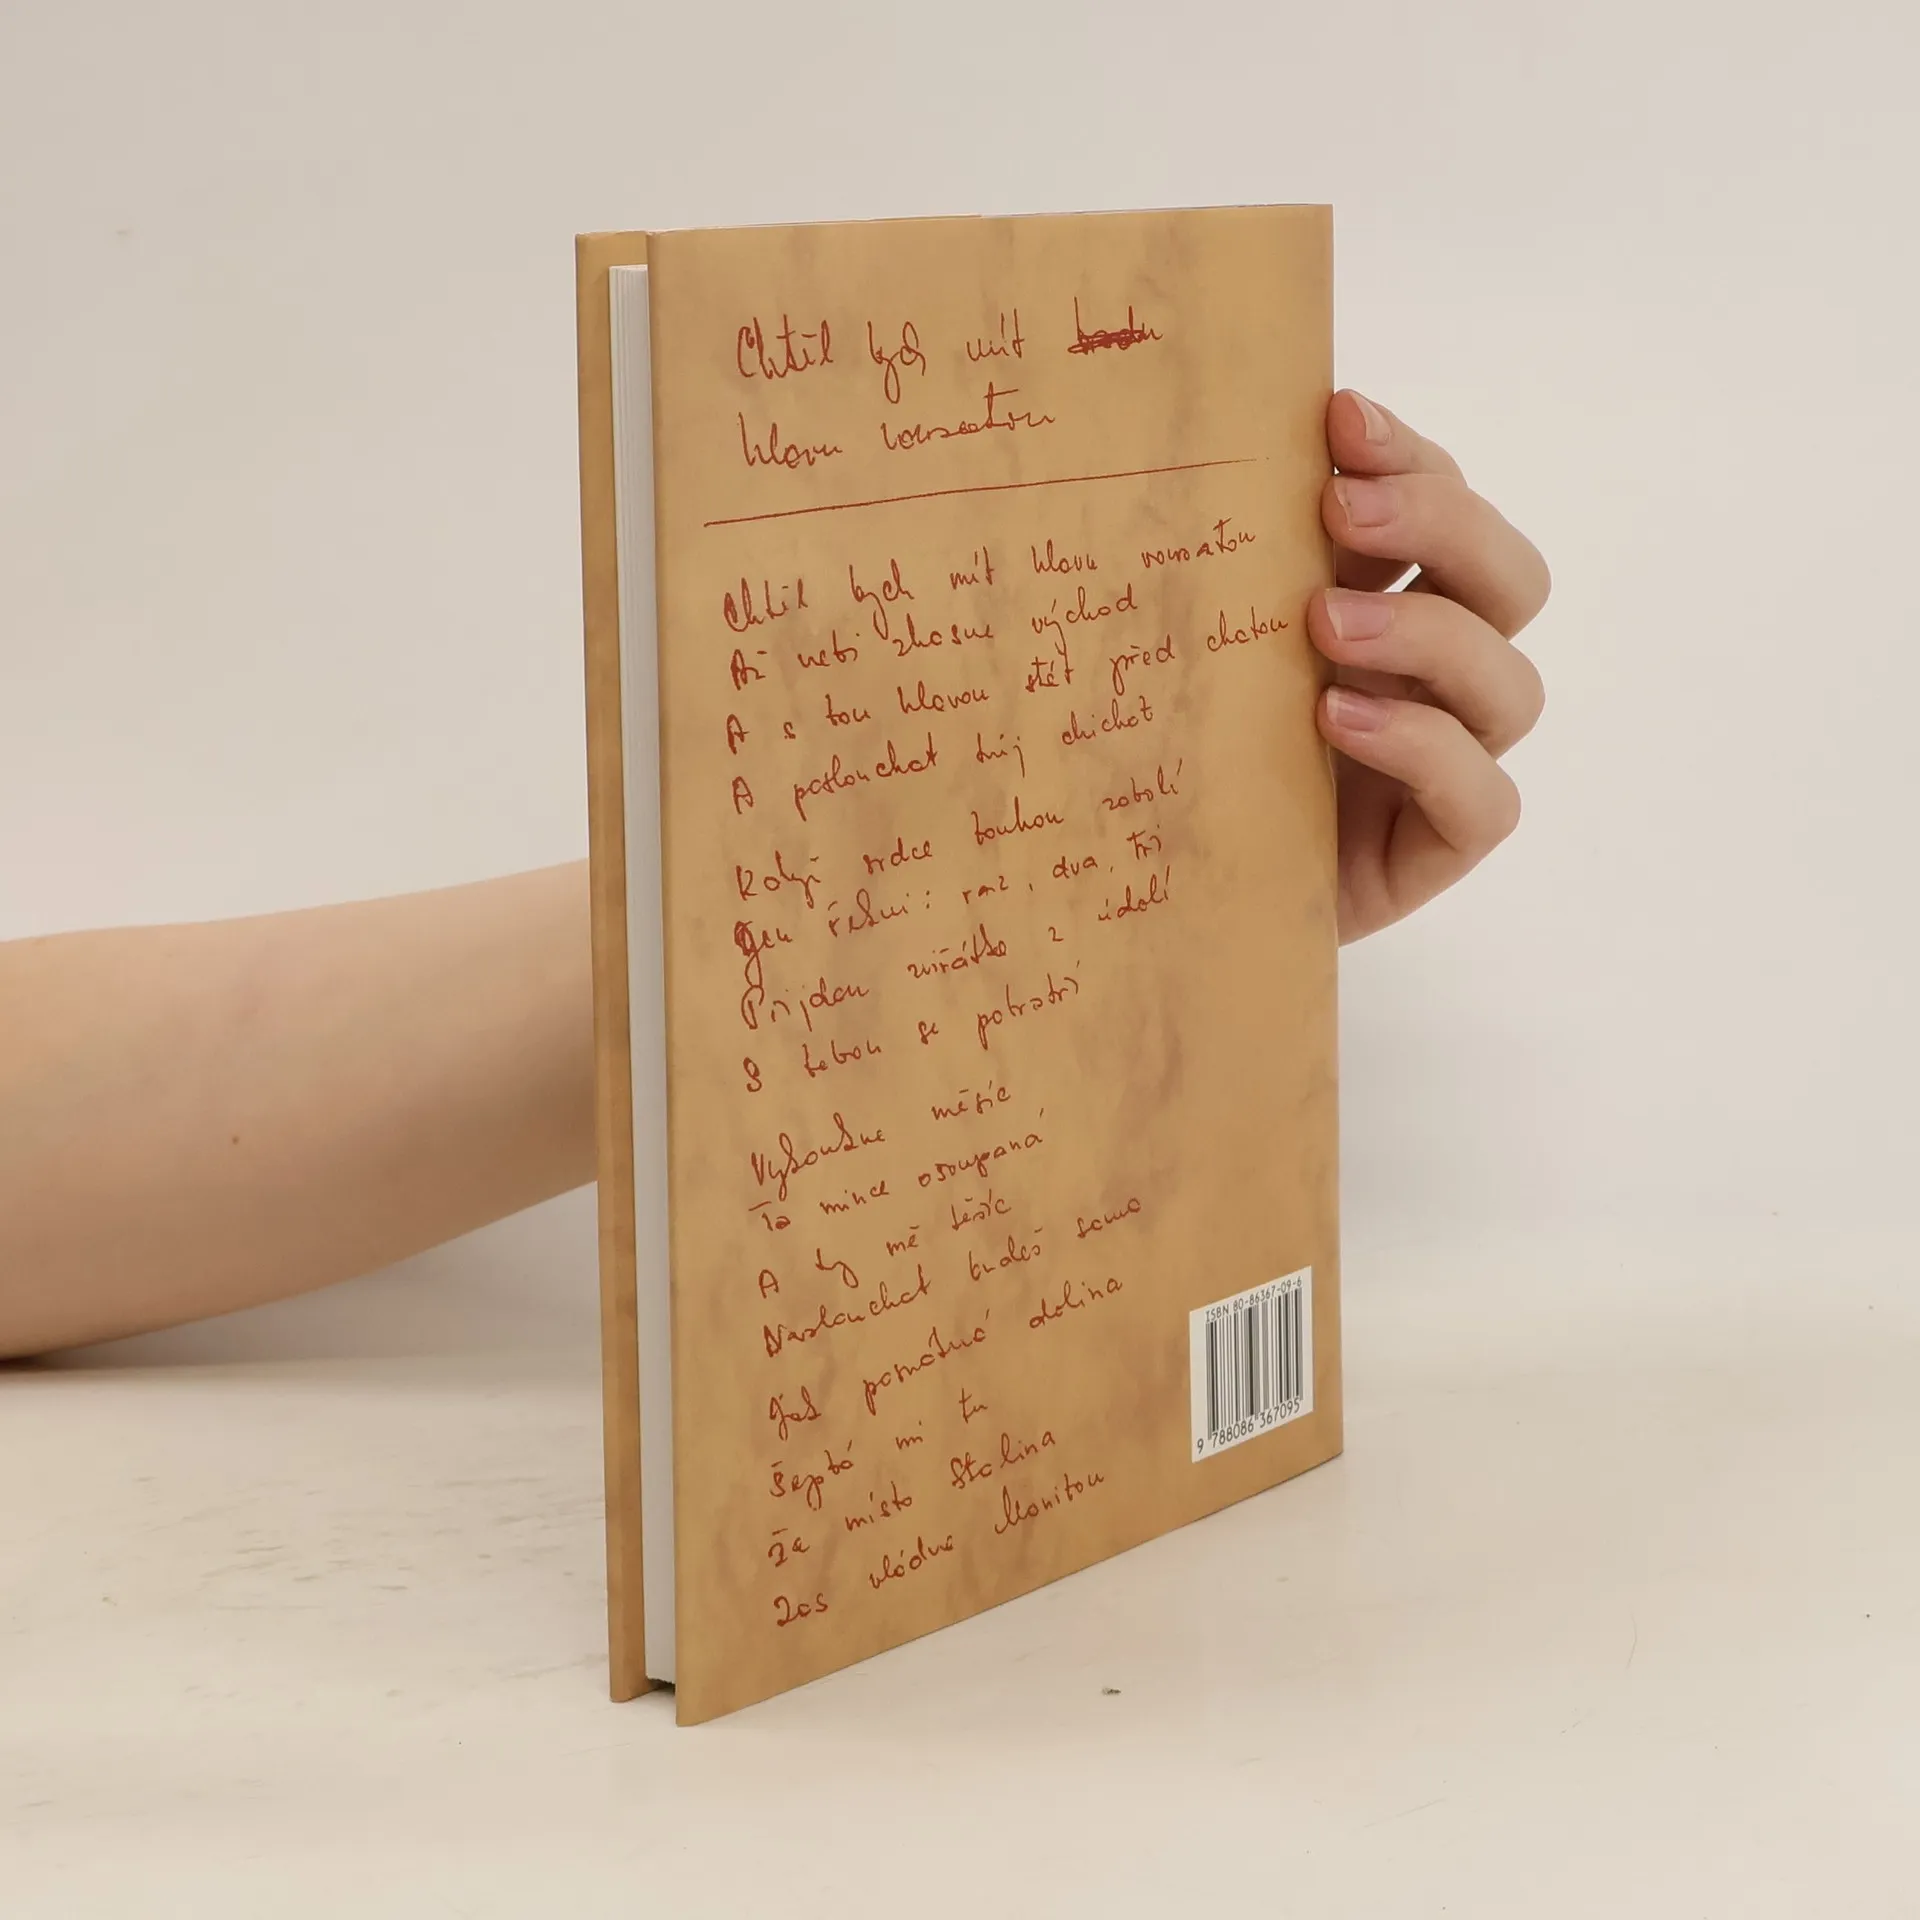 Chtěl bych mít
hlavu vousatou
Chtěl bych mít hlavu vousatou
Až nebi zhasne východ
A s tou hlavou stát před chatou
A poslouchat tvůj chichot
Když srdce touhou zabolí
Jen řekni: raz, dva, tři
Přijdou zvířátka z údolí
S tebou se potratří
Vykoukne měsíc
Ta mince ošoupaná
A ty mě těšíc
Naslouchat budeš sama
Jak památná dolina
Šeptá mi tu
Že místo Stalina
Zas vládne Manitou
ISBN 80-86367-09-6
9 788086 367095